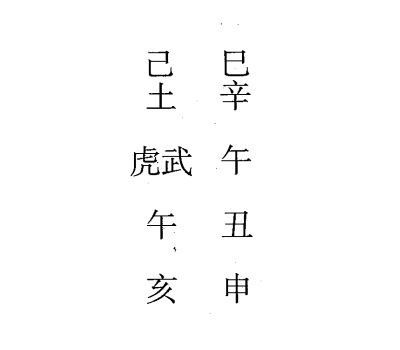 巳辛午丑申
己土虎武午亥